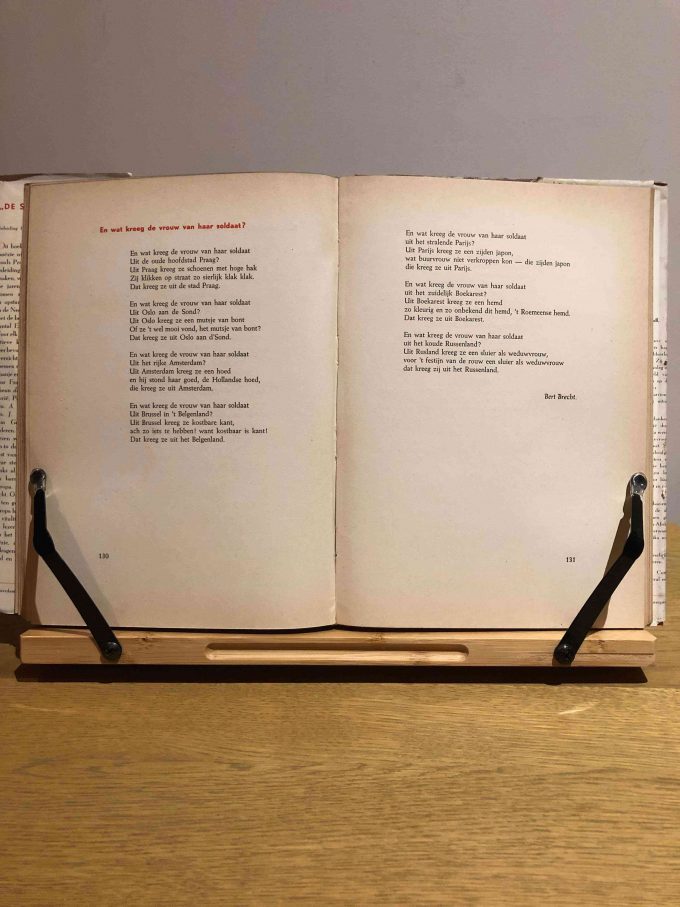 „DE S
En wat kreeg de vrouw van haar soldaat?
En wat kreeg de vrouw van haar soldaat
Uit de oude hoofdstad Praag?
Uit Praag kreeg ze schoenen met hoge hak
Zij klikken op straat zo sierlijk klak klak.
Dat kreeg ze uit de stad Praag.
En wat kreeg de vrouw van haar soldaat
Uit Oslo aan de Sond?
Uit Oslo kreeg ze een mutsje van bont
Of ze 't wel mooi vond, het mutsje van bont?
Dat kreeg ze uit Oslo aan d'Sond.
En wat kreeg de vrouw van haar soldaat
Uit het rijke Amsterdam?
Uit Amsterdam kreeg ze een hoed
en hij stond haar goed, de Hollandse hoed,
die kreeg ze uit Amsterdam.
En wat kreeg de vrouw van haar soldaat
Uit Brussel in 't Belgenland?
Uit Brussel kreeg ze kostbare kant,
ach zo iets te hebben! want kostbaar is kant!
Dat kreeg ze uit het Belgenland.
130
En wat kreeg de vrouw van haar soldaat
uit het stralende Parijs?
Uit Parijs kreeg ze een zijden japon,
wat buurvrouw niet verkroppen kon — die zijden japon
die kreeg ze uit Parijs.
En wat kreeg de vrouw van haar soldaat
uit het zuidelijk Boekarest?
Uit Boekarest kreeg ze een hemd
zo kleurig en zo onbekend dit hemd, 't Roemeense hemd.
Dat kreeg ze uit Boekarest.
En wat kreeg de vrouw van haar soldaat
uit het koude Russenland?
Uit Rusland kreeg ze een sluier als weduwvrouw,
voor 't festijn van de rouw een sluier als weduwvrouw
dat kreeg zij uit het Russenland.
Bert Brecht.
131